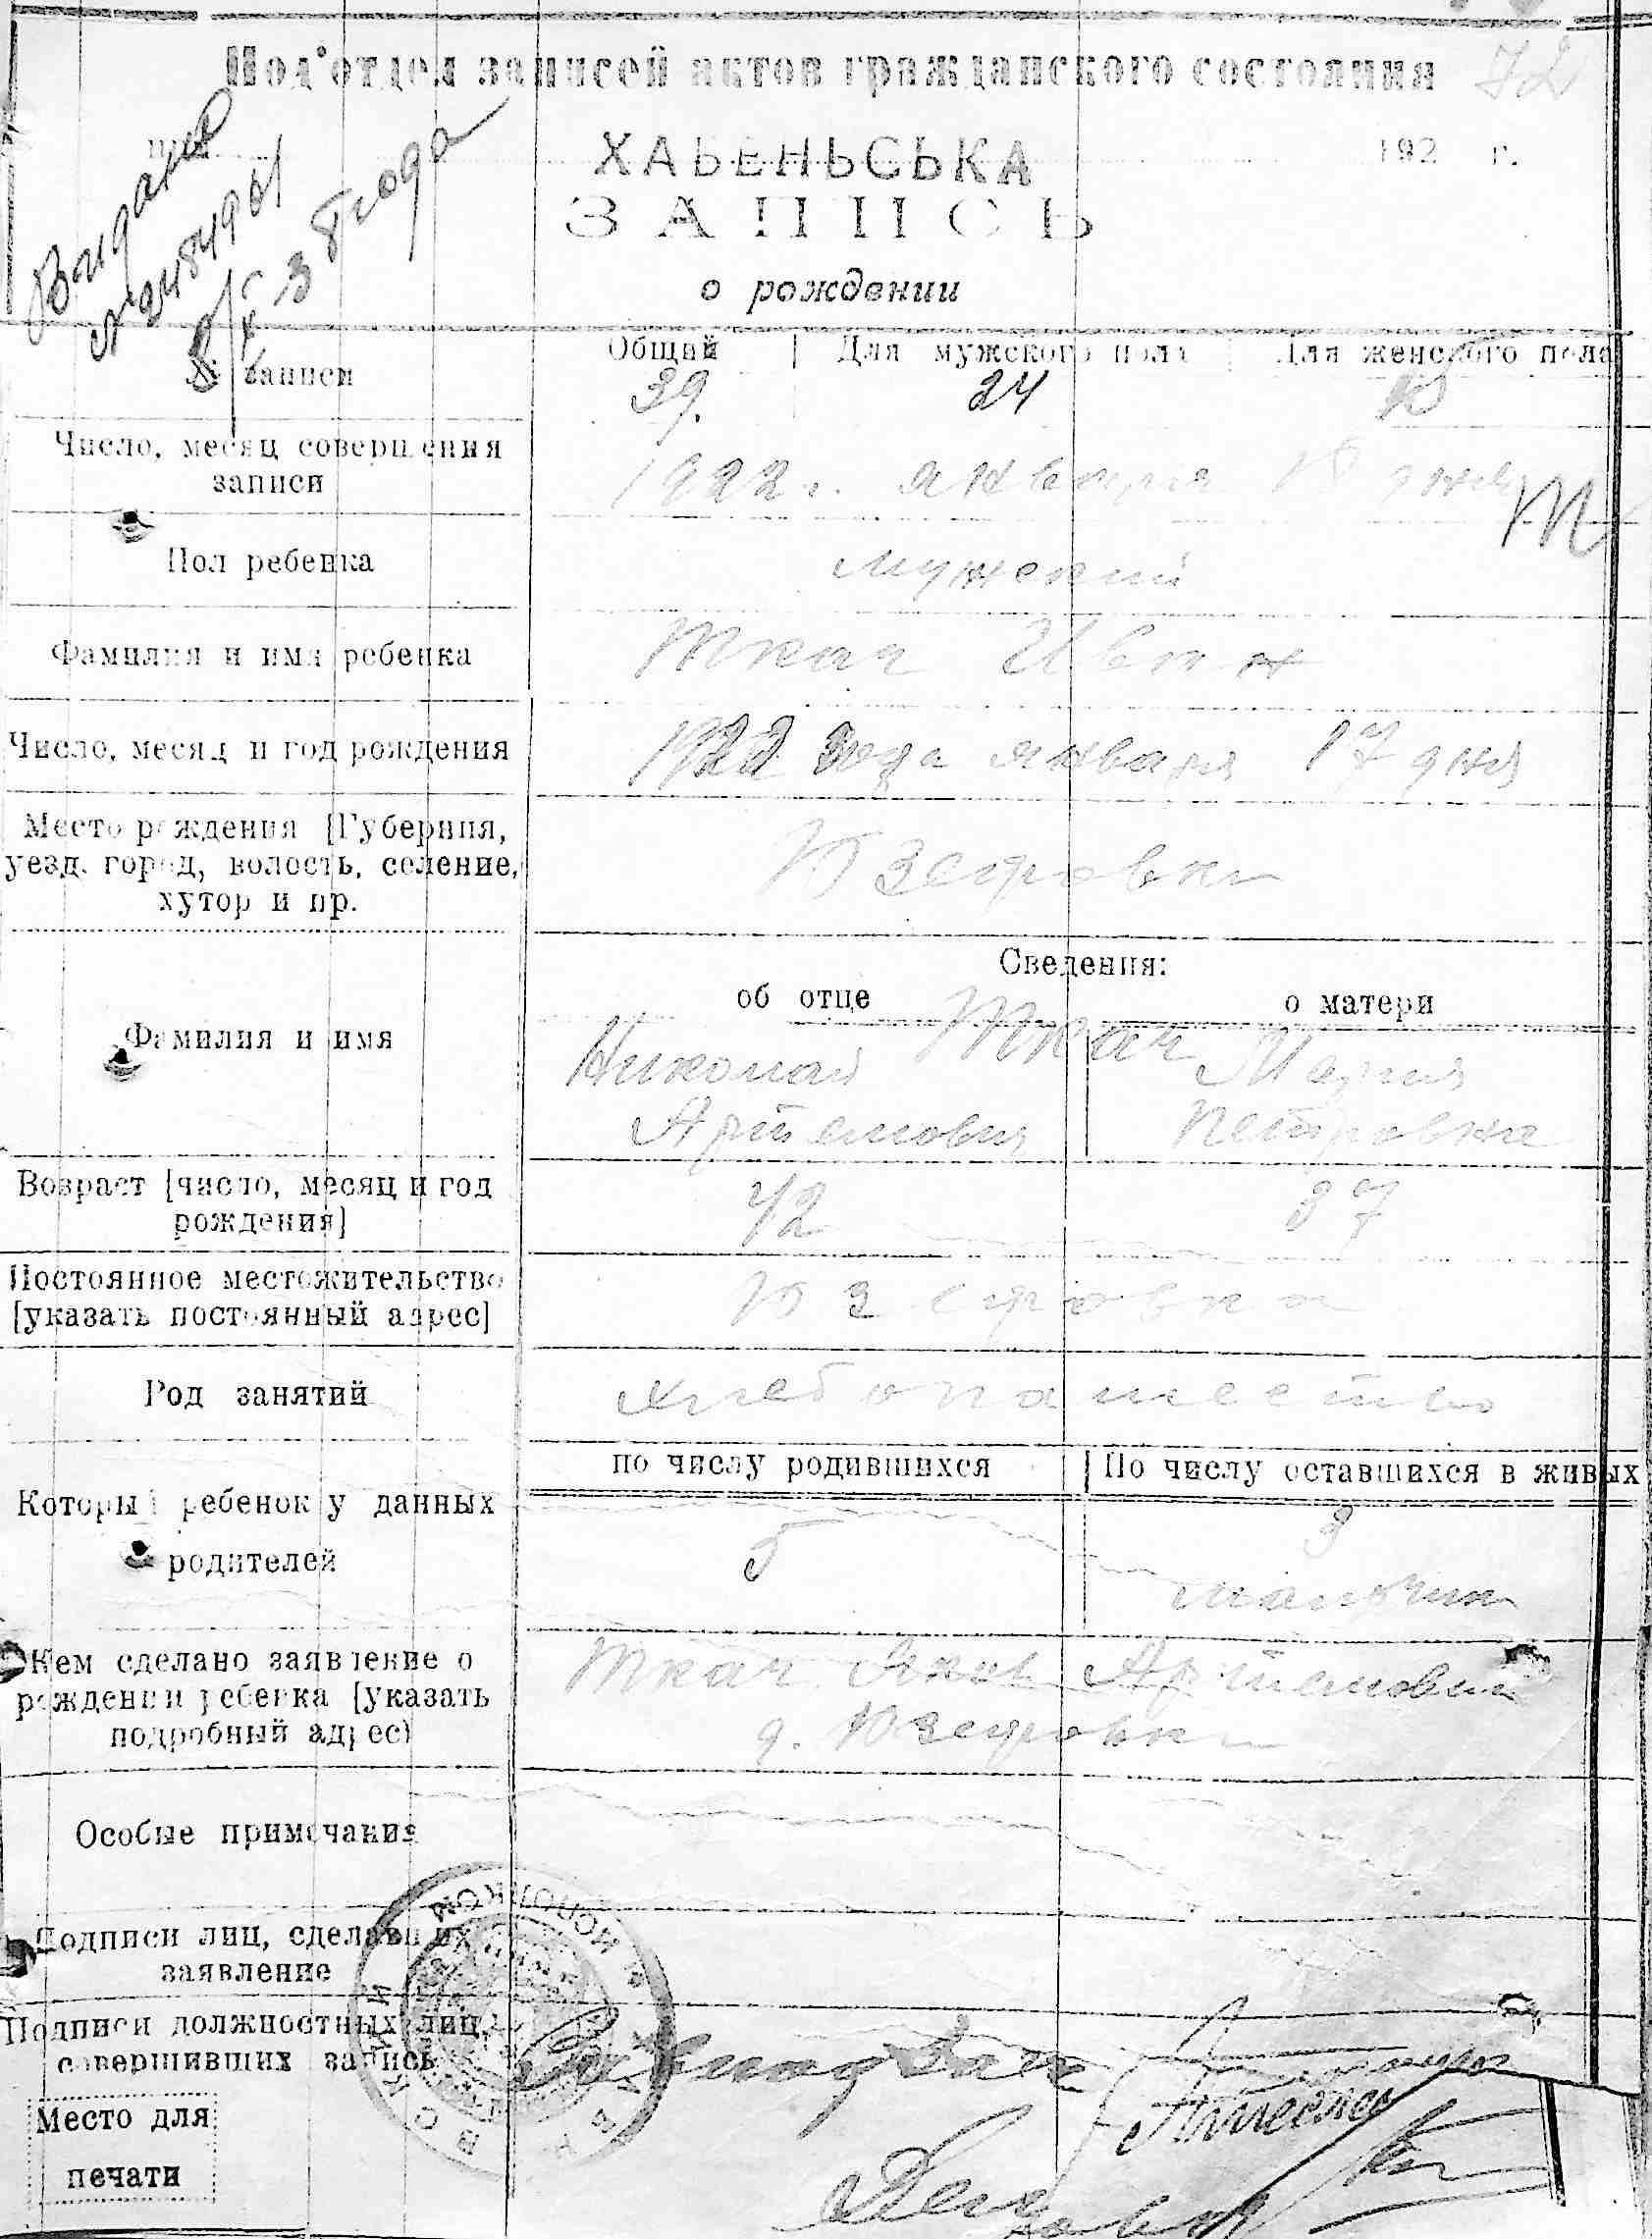 Под'отдел записей актов гражданского состояния 72
при 192 г.
ХАБЕНЬСЬКА
ЗАПИСЬ
о рождении
Видано
3 8 года
Общий Для мужского пола Для женского пола
№ записи 39. 24
Число, месяц совершения
записи
1922 г. января дня
Пол ребенка мужский
Фамилия и имя ребенка Ткач Иван
Число, месяц и год рождения 1922 года января 17 дня
Место рождения [Губерния,
уезд. город, волость, селение,
хутор и пр.
Юзефовка
Сведения:
об отце о матери
Фамилия и имя
Ткач
Николай Мария
Артемович Петровна
Возраст [число, месяц и год
рождения]
42 37
Постоянное местожительство
[указать постоянный адрес]
Юзефовка
Род занятий хлебопашество
по числу родившихся По числу оставшихся в живых
Который ребенок у данных
родителей
5 3
мальчик
Кем сделано заявление о
рождении ребенка [указать
подробный адрес)
Ткач Яков Артемович
д. Юзефовка
Особые примечания
Подписи лиц, сделавших
заявление
Подписи должностных лиц,
совершивших запись
Место для
печати